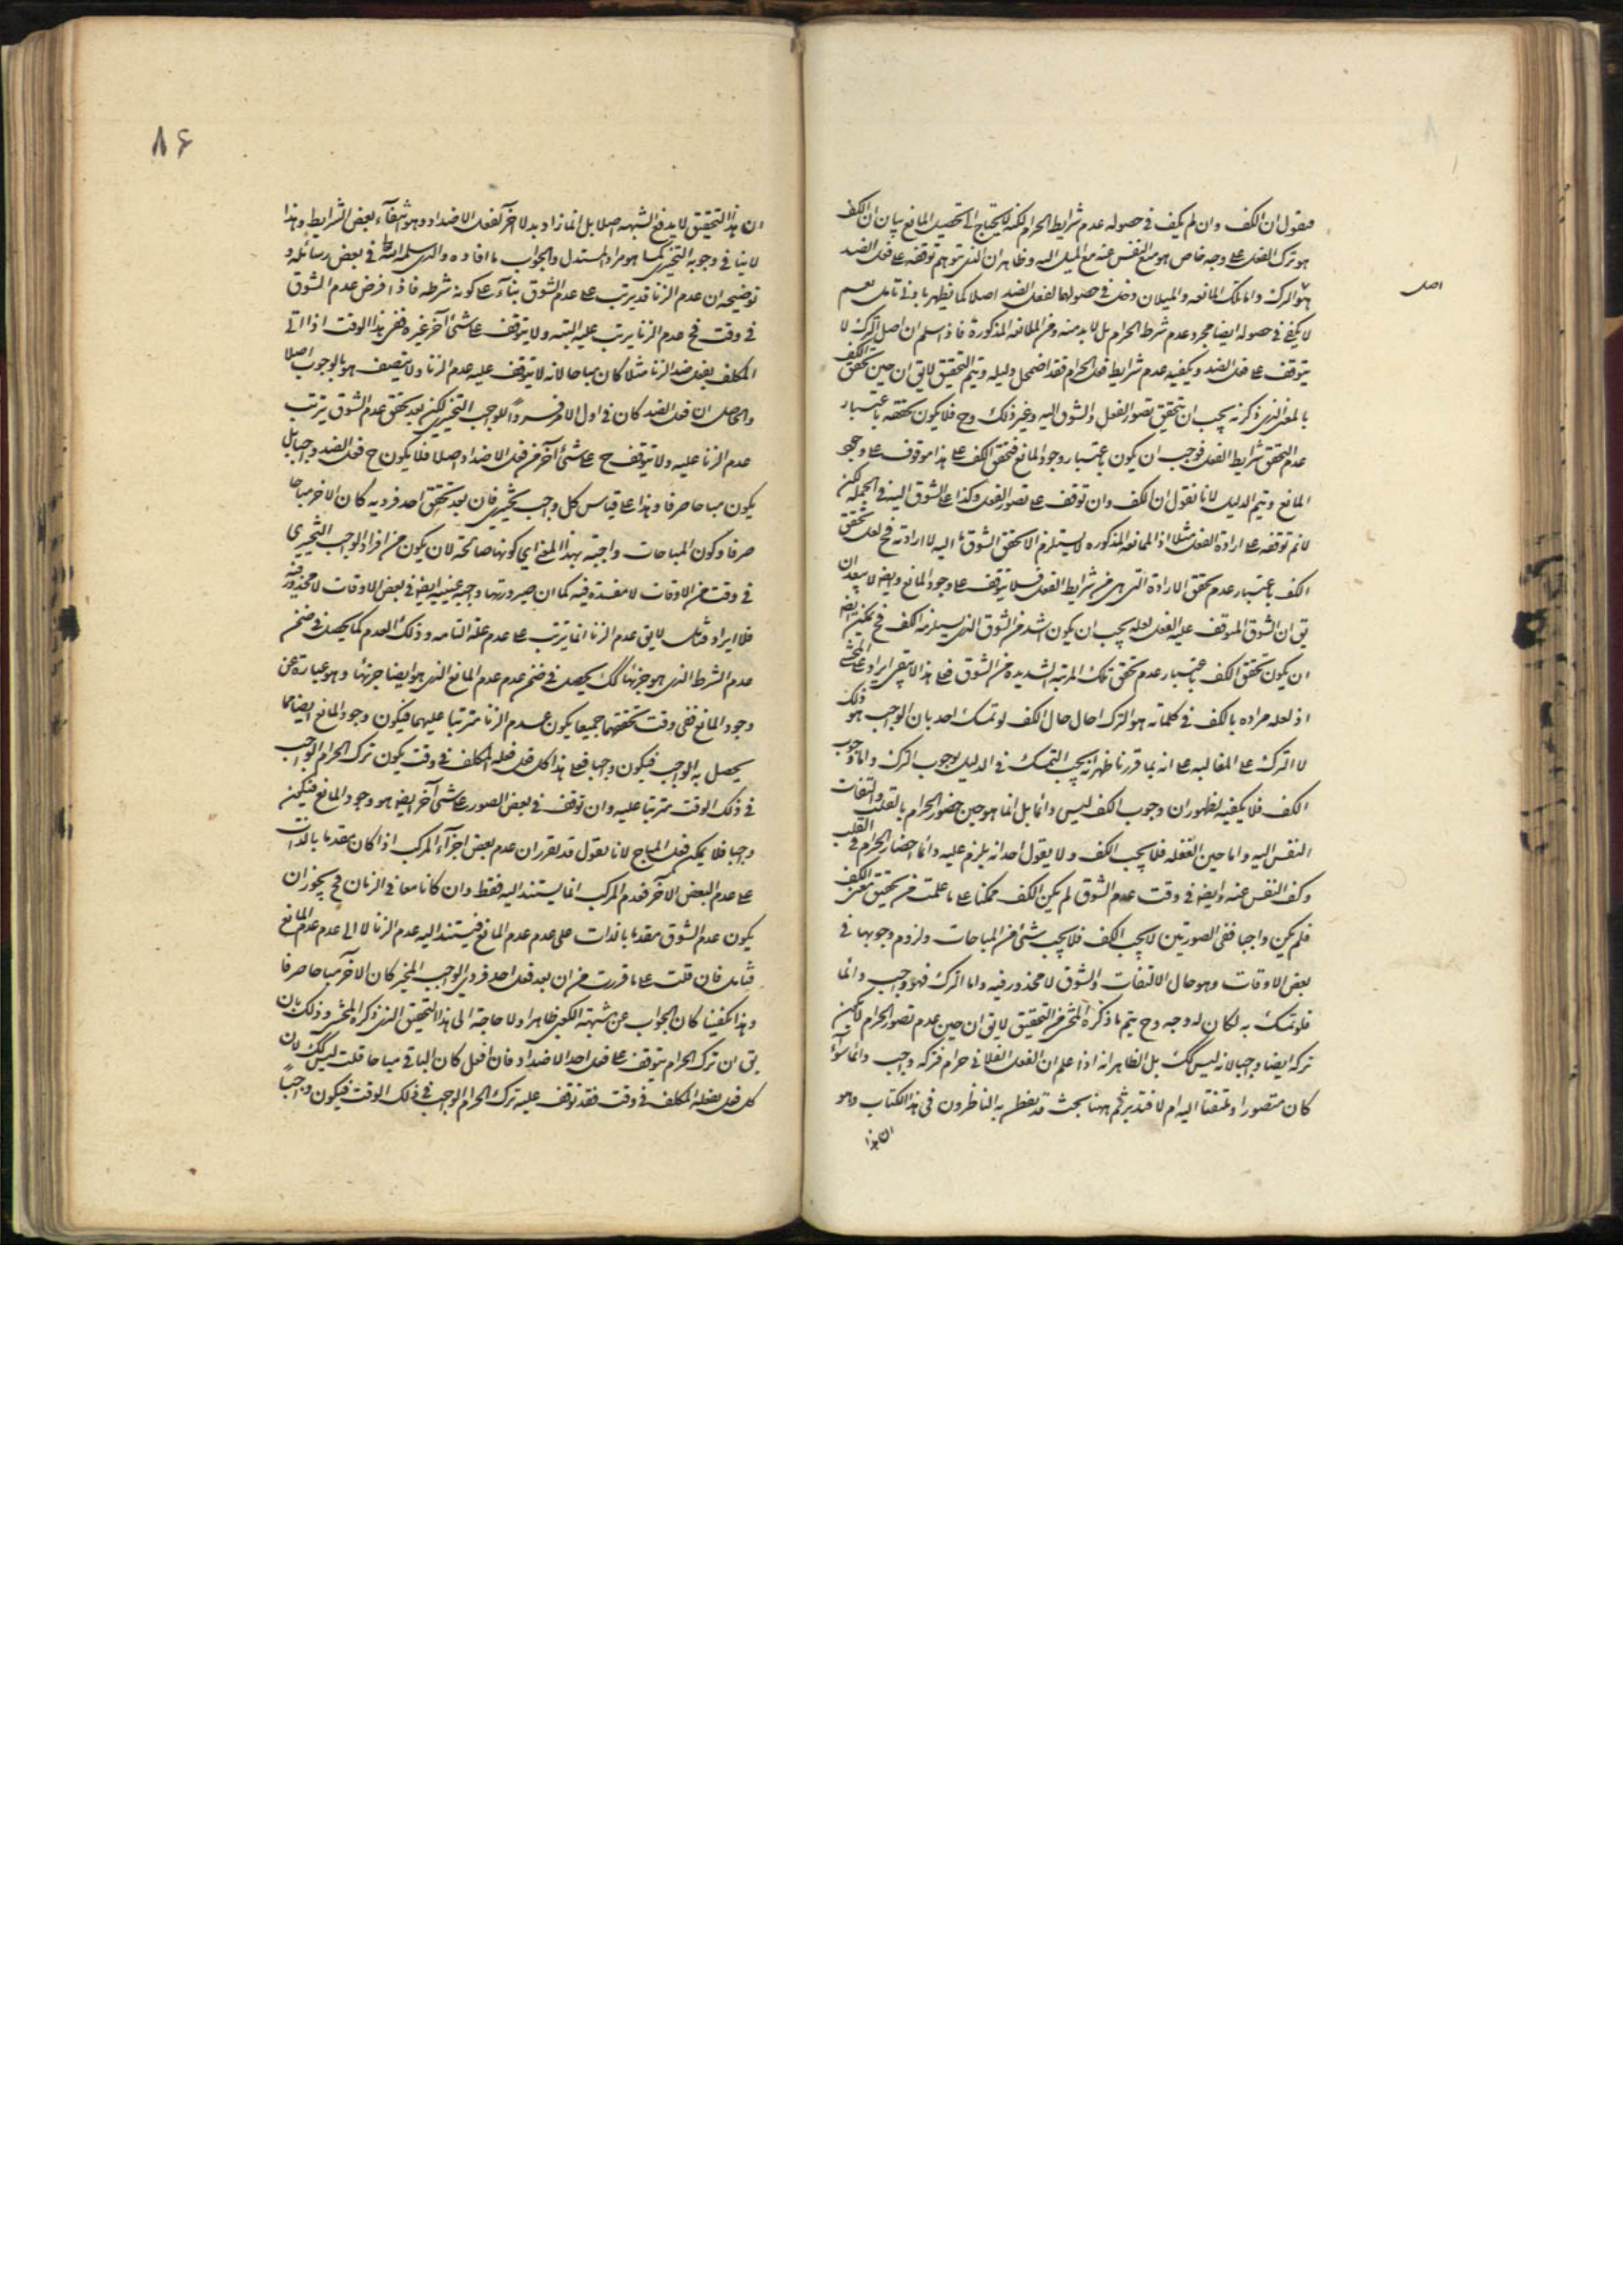 فنقول ان الكف وان لم يكف في حصوله عدم شرايط الحرام لكنه لا يحتاج الى تحصيل المانع بيان ان الكف
هو ترك الفعل على وجه خاص هو منع النفس عنه مع الميل اليه وظاهر ان الذي يتوهم توقفه على فعل الضد
هو الترك واما تلك الممانعه والميلان دخل في حصولها لفعل الضد اصلا كما يظهر بادنى تامل نعم
اصل
لا يكفي في حصوله ايضا مجرد عدم شرط الحرام بل لا بد منه ومن الممانعه المذكورة فاذا سلم ان اصل الترك لا
يتوقف على فعل الضد ويكفيه عدم شرايط فعل الحرام فقد اضمحل دليله ويتم التحقيق لا يق ان حين تحقق الكف
بالمعنى الذي ذكرته يجب ان يتحقق تصور الفعل والشوق اليه وغير ذلك وح فلا يكون تحققه باعتبار
عدم التحقق شرايط الفعل فوجب ان يكون باعتبار وجود المانع فتحقق الكف على هذا موقوف على وجود
المانع ويتم الدليل لانا نقول ان الكف وان توقف على تصور الفعل وكذا على الشوق اليه في الجملة لكن
لانم توقفه على ارادة الفعل مثلا اذ الممانعه المذكوره لا يستلزم الا تحقق الشوق ما اليه لا ارادته فح لعل تحقق
الكف باعتبار عدم تحقق الارادة التي هي من شرايط الفعل فلا يتوقف على وجود المانع وايضه لا يبعد ان
يق ان الشوق الموقف عليه الفعل لعله يجب ان يكون اشد من الشوق الذي يستلزمه الكف فح يمكن ايضه
ان يكون تحقق الكف باعتبار عدم تحقق تلك المرتبه الشديده من الشوق فعلى هذا لا يبقى ايراد على المحشى
اذ لعله مراده بالكف في كلماته هو الترك احال حال الكف لو تمسك احد بان الواجب هو ذلك
لا الترك على المقايسه على انه بما قررنا ظهر انه يجب التمسك في الدليل بوجوب الترك واما وجوب
الكف فلا يكفيه لظهور ان وجوب الكف ليس دائما بل انما هو حين حضور الحرام بالقلب والتفات
النفس اليه واما حين الغفله فلا يجب الكف ولا يقول احد انه يلزم عليه دائما احضار الحرام في القلب
وكف النفس عنه وايضه في وقت عدم الشوق لم يكن الكف ممكنا على ما علمت من تحقيق معنى الكف
فلم يكن واجبا ففي الصورتين لا يجب الكف فلا يجب شئ من المباحات ولزوم وجوبها في
بعض الاوقات وهو حال الالتفات والشوق لا محذور فيه واما الترك فهو واجب دائما
فلو تمسك به لكان له وجه وح يتم ما ذكره المحشى من التحقيق لا يق ان حين عدم تصور الحرام لا يكون
تركه ايضا واجبا لانه ليس كك بل الظاهر انه اذا علم ان الفعل الفلاني حرام فتركه واجب دائما سواء
كان متصورا وملتفتا اليه ام لا فتدبر ثم ههنا بحث قد يفطن به الناظرون في هذا الكتاب وهو
ان هذا
٨٤
ان هذا التحقيق لا يدفع الشبهه اصلا بل انما زاد بدلا آخر لفعل الاضداد وهو انتفاء بعض الشرايط وهذا
لا ينافي وجوبه التخييري كما هو مراد المستدل والجواب ما افاده والدي سلمه الله تعا في بعض رسائله و
توضيحه ان عدم الزنا قد يترتب على عدم الشوق بناء على كونه شرطه فاذا فرض عدم الشوق
في وقت فح عدم الزنا يترتب عليه البته ولا يتوقف على شئ آخر غيره ففي هذا الوقت اذا اتى
المكلف بفعل ضد الزنا مثلا كان مباحا لانه لا يتوقف عليه عدم الزنا ولا يتصف هو بالوجوب اصلا
والحاصل ان فعل الضد كان في اول الامر فردا للواجب التخييري لكن بعد تحقق عدم الشوق يترتب
عدم الزنا عليه ولا يتوقف ح على شئ آخر من فعل الاضداد اصلا فلا يكون ح فعل الضد واجبا بل
يكون مباحا صرفا وهذا على قياس كل واجب تخييري فان بعد تحقق احد فرديه كان الاخر مباحا
صرفا وكون المباحات واجبة بهذا المعنى اي كونها صالحة لان يكون من افراد الواجب التخييري
في وقت من الاوقات لا مفسدة فيه كما ان صيرورتها واجبة عينيه ايضه في بعض الاوقات لا محذور فيه
فلا ايراد فتامل لا يق عدم الزنا انما يترتب على عدم علة التامه وذلك العدم كما يحصل في ضمن
عدم الشرط الذي هو جزئها كك يحصل في ضمن عدم عدم المانع الذي هو ايضا جزئها وهو عبارة عن
وجود المانع ففي وقت تحققهما جميعا يكون عدم الزنا مترتبا عليهما فيكون وجود المانع ايضا مما
يحصل به الواجب فيكون واجبا فعلى هذا كل فعل فعله المكلف في وقت يكون ترك الحرام الواجب
في ذلك الوقت مترتبا عليه وان توقف في بعض الصور على شئ آخر ايضه هو وجود المانع فيكون
واجبا فلا يمكن فعل المباح لانا نقول قد تقرر ان عدم بعض اجزاء المركب اذا كان مقدما بالذات
على عدم البعض الآخر فعدم المركب انما يستند اليه فقط وان كانا معا في الزمان فح يجوز ان
يكون عدم الشوق مقدما بالذات على عدم عدم المانع فيستند اليه عدم الزنا لا الى عدم عدم المانع
فتامل فان قلت على ما قررت من ان بعد فعل احد فردي الواجب المخير كان الآخر مباحا صرفا
وهذا يكفينا كان الجواب عن شبهة الكعبي ظاهرا ولا حاجة الى هذا التحقيق الذي ذكره المحشى وذلك بان
يق ان ترك الحرام يتوقف على فعل احد الاضداد فان افعل كان الباقي مباحا قلت ليس كك لان
كل فعل يفعله المكلف في وقت فقد توقف عليه ترك الحرام الواجب في ذلك الوقت فيكون واجبا